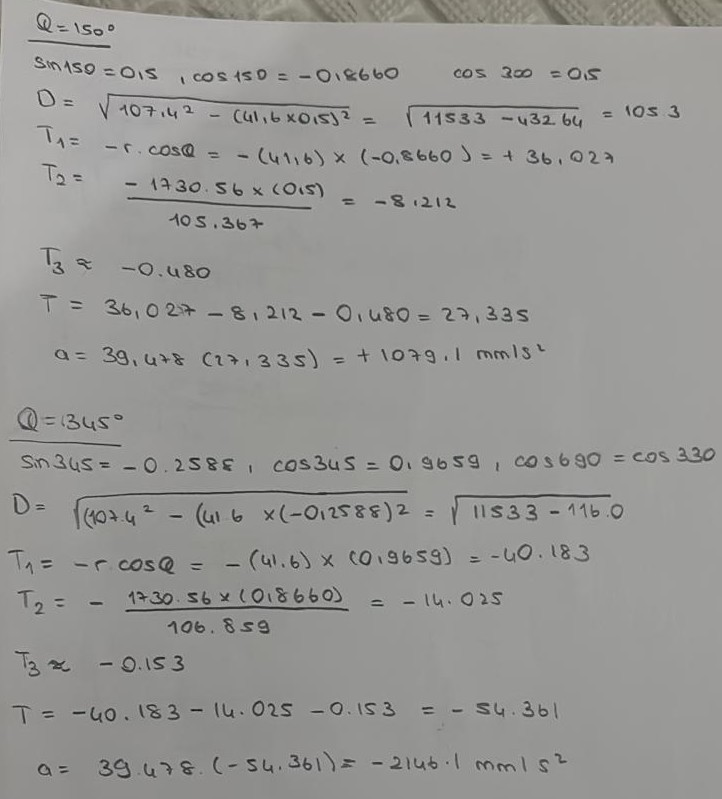 Q=150°
sin150=0,5 , cos150=-0,8660 cos 300 =0,5
D= √107,4² - (41,6x0,5)² = √11533 -432 64 = 105.3
T₁= -r.cosQ = -(41,6)x(-0,8660)=+36,027
T₂= -1730.56x(0,5)/105.367 = -8,212
T₃≈ -0.480
T= 36,027-8,212-0,480=27,335
a= 39,478 (27,335)=+1079,1 mm/s²
Q=345°
sin345=-0.2588, cos345=0,9659, cos690=cos330
D= √(107.4²-(41.6 x(-0,2588)² = √11533-116.0
T₁= -r.cosQ = -(41.6)x(0,9659)=-40.183
T₂= - 1730.56x(0,8660)/106.859 = -14.025
T₃≈ -0.153
T= -40.183-14.025-0.153 = -54.361
a= 39.478.(-54.361)=-2146.1 mm/s²